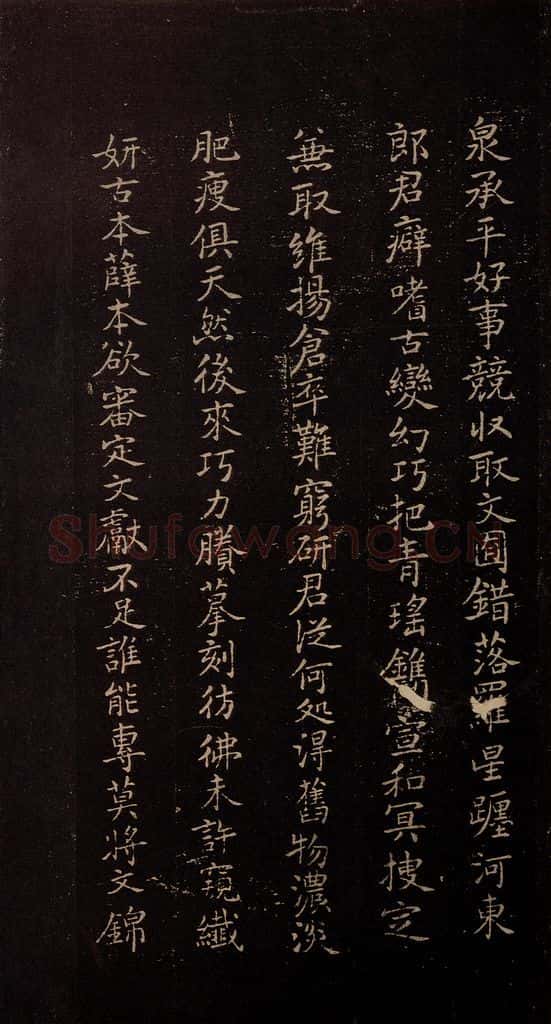 泉承平好事競收取文圓錯落羅星躔河東
郎君癖嗜古變幻巧把青瑤鐫宣和冥搜定
兼取維揚倉卒難窮研君從何処得舊物濃淡
肥瘦俱天然後來巧力賸摹刻彷彿未許窺纖
妍古本薛本欲審定文獻不足誰能專莫將文錦
Shufawang.CN